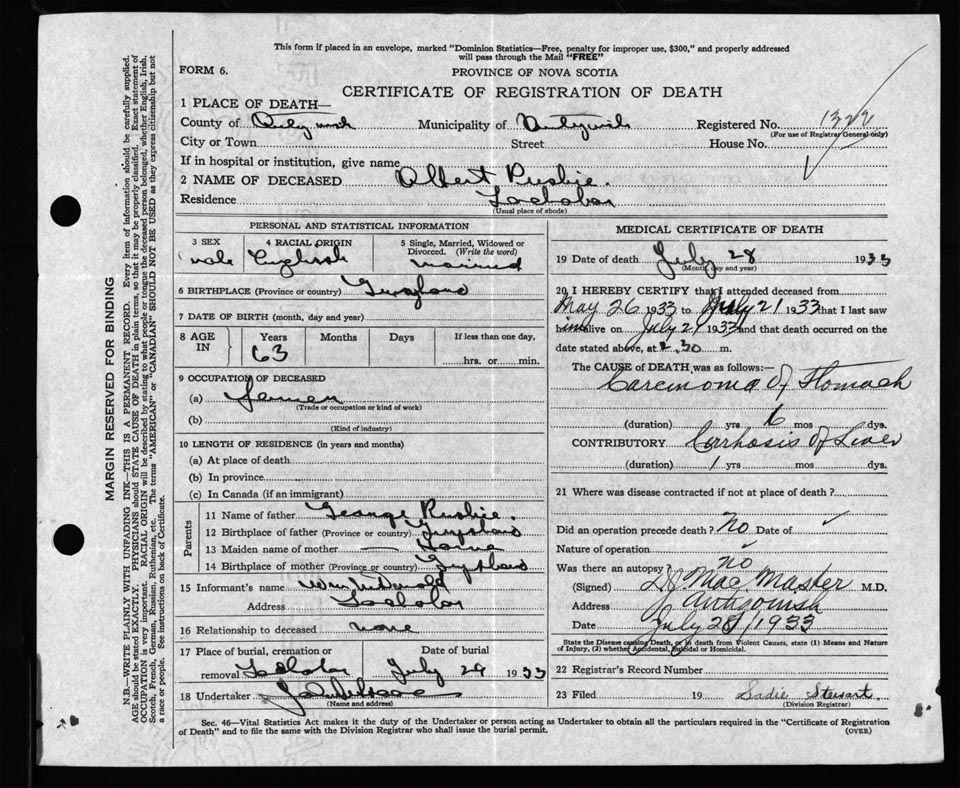 This form if placed in an envelope, marked "Dominion Statistics—Free, penalty for improper use, $300," and properly addressed
will pass through the Mail "FREE"
FORM 6.
PROVINCE OF NOVA SCOTIA
CERTIFICATE OF REGISTRATION OF DEATH
1 PLACE OF DEATH—
County of Antigonish Municipality of Antigonish Registered No. 1322
(For use of Registrar General only)
City or Town Street House No.
If in hospital or institution, give name
2 NAME OF DECEASED Albert
Residence Lochaber
(Usual place of abode)
PERSONAL AND STATISTICAL INFORMATION
3 SEX 4 RACIAL ORIGIN 5 Single, Married, Widowed or Divorced. (Write the word)
male English married
6 BIRTHPLACE (Province or country) England
7 DATE OF BIRTH (month, day and year)
8 AGE IN Years Months Days If less than one day,
63 hrs. or min.
9 OCCUPATION OF DECEASED
(a) Farmer
(Trade or occupation or kind of work)
(b)
(Kind of industry)
10 LENGTH OF RESIDENCE (in years and months)
(a) At place of death
(b) In province
(c) In Canada (if an immigrant)
Parents
11 Name of father George
12 Birthplace of father (Province or country) England
13 Maiden name of mother —
14 Birthplace of mother (Province or country) England
15 Informant's name Wm
Address Lochaber
16 Relationship to deceased none
17 Place of burial, cremation or removal Date of burial
Lochaber July 29 1933
18 Undertaker
(Name and address)
MEDICAL CERTIFICATE OF DEATH
19 Date of death July 28 1933
(Month, day and year)
20 I HEREBY CERTIFY that I attended deceased from
May 26 1933 to July 21 1933 that I last saw
him alive on July 21 1933 and that death occurred on
date stated above, at 2.30 m.
The CAUSE of DEATH was as follows:—
Carcinoma of Stomach
(duration) yrs 6 mos dys.
CONTRIBUTORY Cirrhosis of Liver
(duration) 1 yrs mos dys.
21 Where was disease contracted if not at place of death?
Did an operation precede death? No Date of
Nature of operation
Was there an autopsy? no
(Signed) MacMaster M.D.
Address Antigonish
Date July 28/1933
State the Disease causing Death, or, in death from Violent Causes, state (1) Means and Nature
of Injury, (2) whether Accidental, Suicidal or Homicidal.
22 Registrar's Record Number
23 Filed 19 Sadie Stewart
(Division Registrar)
Sec. 46—Vital Statistics Act makes it the duty of the Undertaker or person acting as Undertaker to obtain all the particulars required in the "Certificate of Registration
of Death" and to file the same with the Division Registrar who shall issue the burial permit.
(OVER)
MARGIN RESERVED FOR BINDING
N.B.—WRITE PLAINLY WITH UNFADING INK—THIS IS A PERMANENT RECORD. Every item of information should be carefully supplied.
AGE should be stated EXACTLY. PHYSICIANS should STATE CAUSE OF DEATH in plain terms, so that it may be properly classified. Exact statement of
OCCUPATION is very important. RACIAL ORIGIN will be described by stating to what people or tongue the deceased person belonged, whether English, Irish,
Scotch, French, German, Russian, Ruthenian, etc. The terms "AMERICAN" or "CANADIAN" SHOULD NOT BE USED as they express citizenship but not
a race or people. See instructions on back of Certificate.